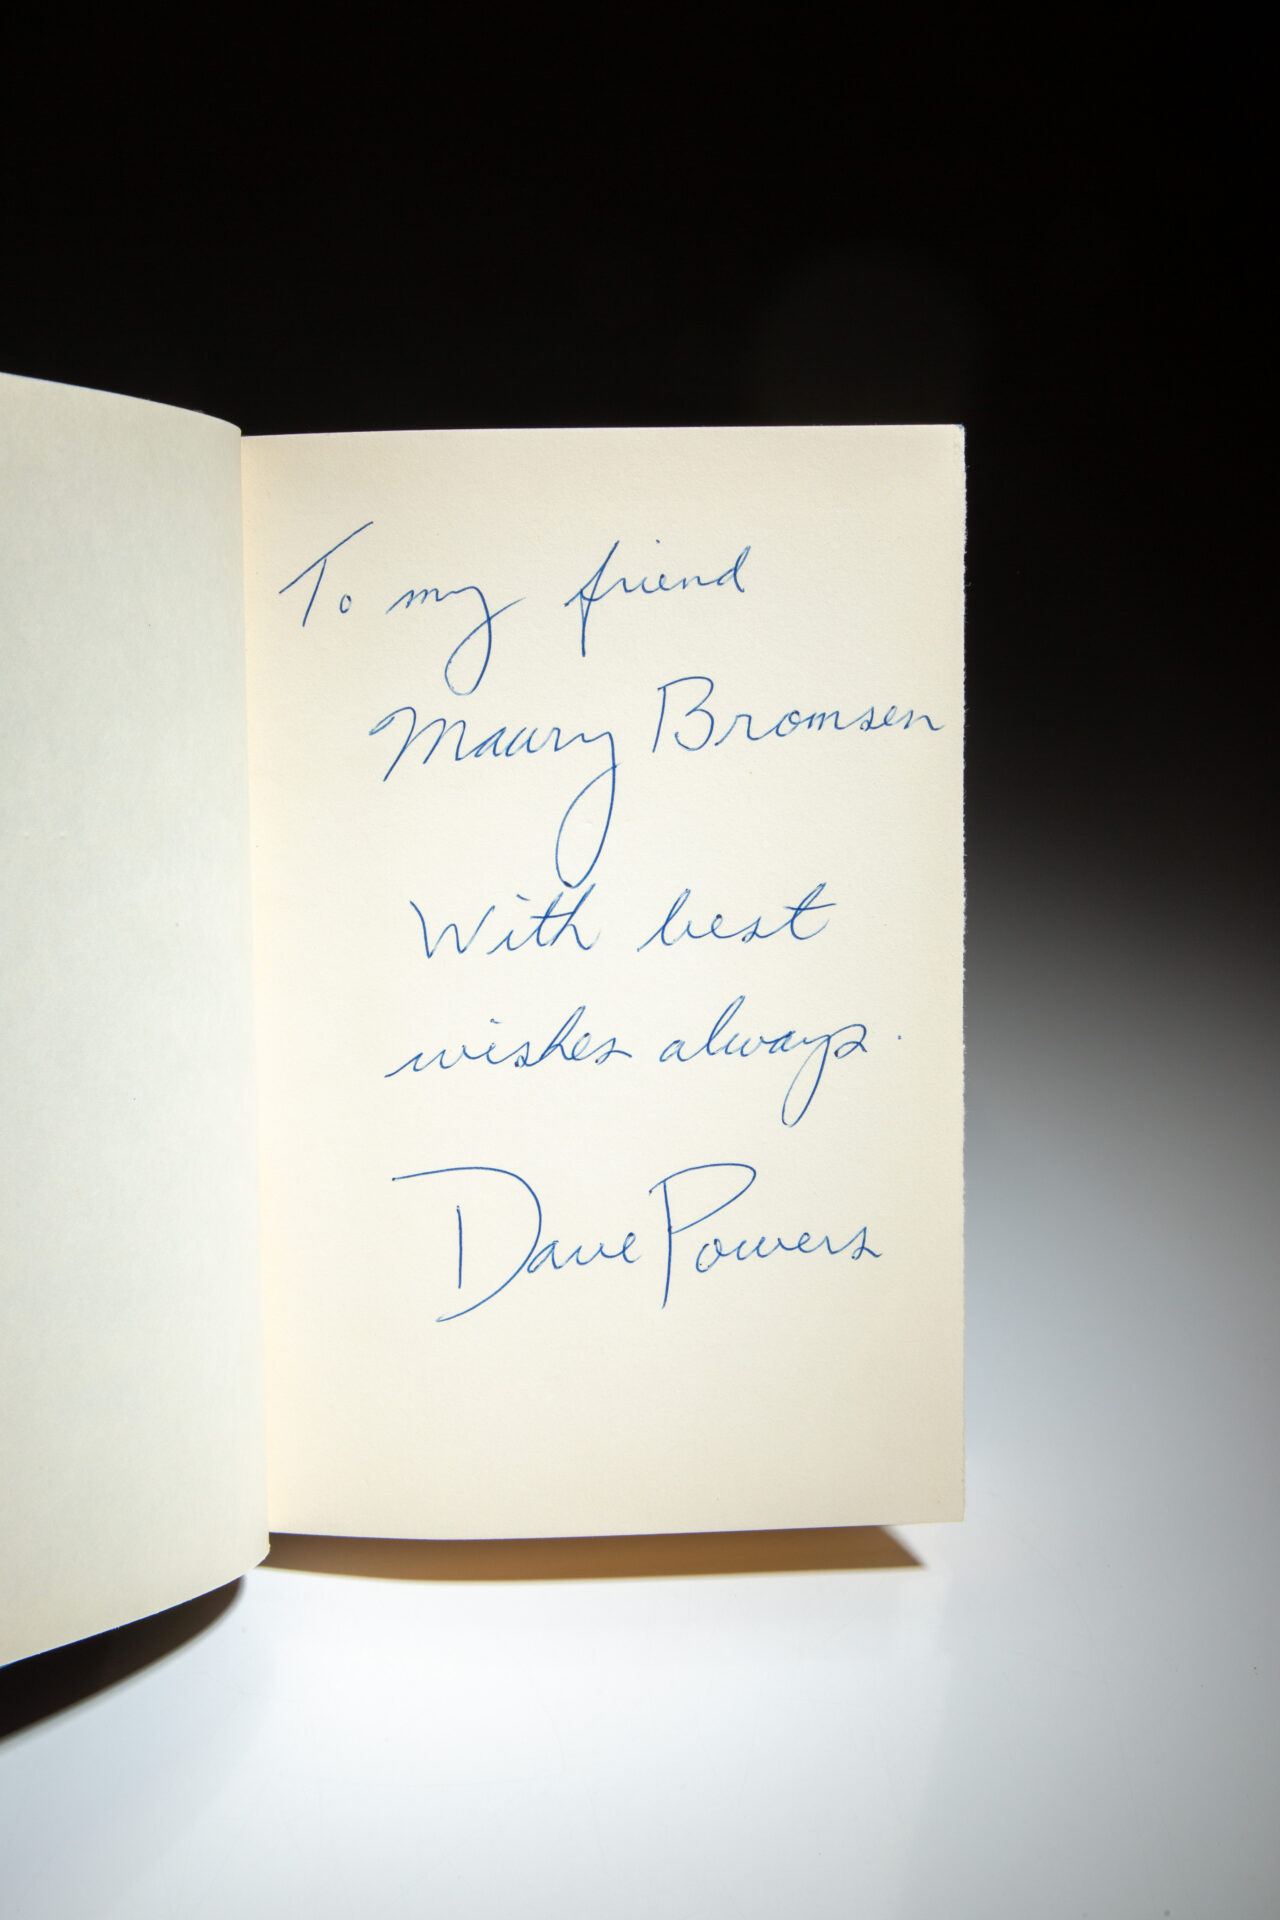 To my friend
Maury Bromsen
With best
wishes always.
Dave Powers